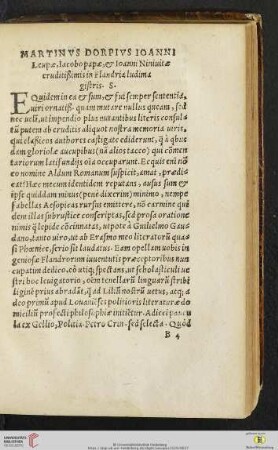 MARTINVS DORPIVS IOANNI
Leupæ, Iacobo papæ, & Ioanni Niuiuitæ
eruditissimis in Flandria ludima
gistris. S.
EQuidem in ea & sum, & fui semper sententia,
uiri ornatiss. quam mutare nullus queam, sed
nec uelim, ut impendio plus nutantibus literis consul
tũ putem ab eruditis aliquot nostra memoria uiris,
qui classicos authores castigate ediderunt, q̃ à qbus
dam gloriolæ aucupibus (nã alios taceo) qui cõmen
tariorum latifundijs oīa occuparunt. Et
nomine Aldum Romanum suspicit, amat, prædi
cat: Hæc mecum identidem reputans, ausus sum &
ipse quiddam minuti (pene dixerim) minimo, nempe
fabellas Aesopicas rursus emittere, nõ carmine qui
dem illas subrustice conscriptas, sed prosa oratione
nimis q̃ lepide cõcinnatas, ut pote à Guilielmo Gau
dano, tanto uiro, ut ab Erasmo meo literatorũ quasi
Phœnice, serio sit laudatus. Eam opellam uobis in
geniosæ Flandrorum iuuentutis præceptoribus nun
cupatim dedico. eò utiq; spectans, ut scholasticuli ue
stri hoc leuigatorio, ceu tenellarũ linguarũ stribi
liginẽ prius abradãt, q̃ ad Latiũ nostrũ uetus, atq;
adeo primũ apud Louaniẽses politioris literaturæ do
micilium prosecti philosophiæ initiẽtur. Adieci pau
la ex Gellio, Politia. Petro Crin. sed selecta. Quòd
B 4